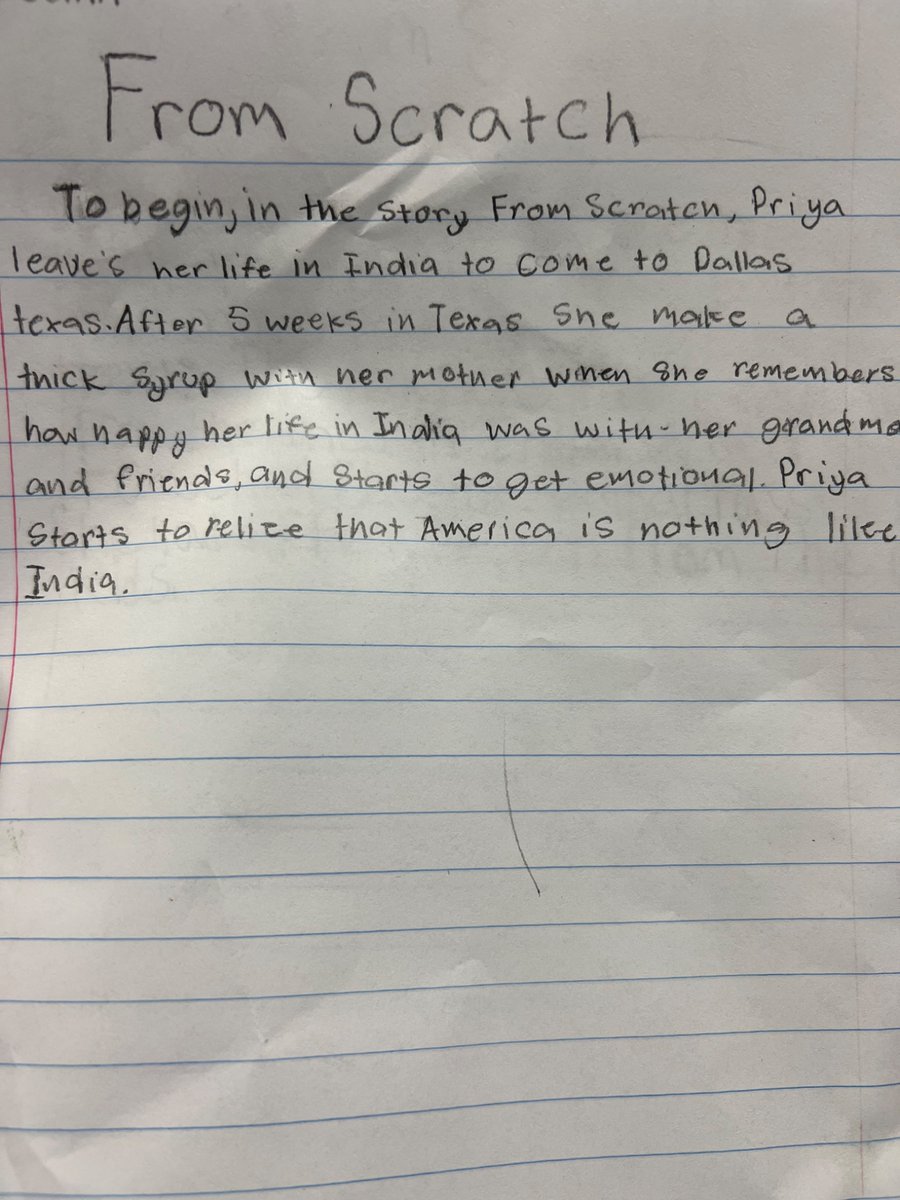 From Scratch
To begin, in the story From Scratch, Priya
leave's her life in India to come to Dallas
texas. After 5 weeks in Texas She make a
thick Syrup with her mother when she remembers
how happy her life in India was with her grandma
and friends, and starts to get emotional. Priya
Starts to relize that America is nothing like
India.